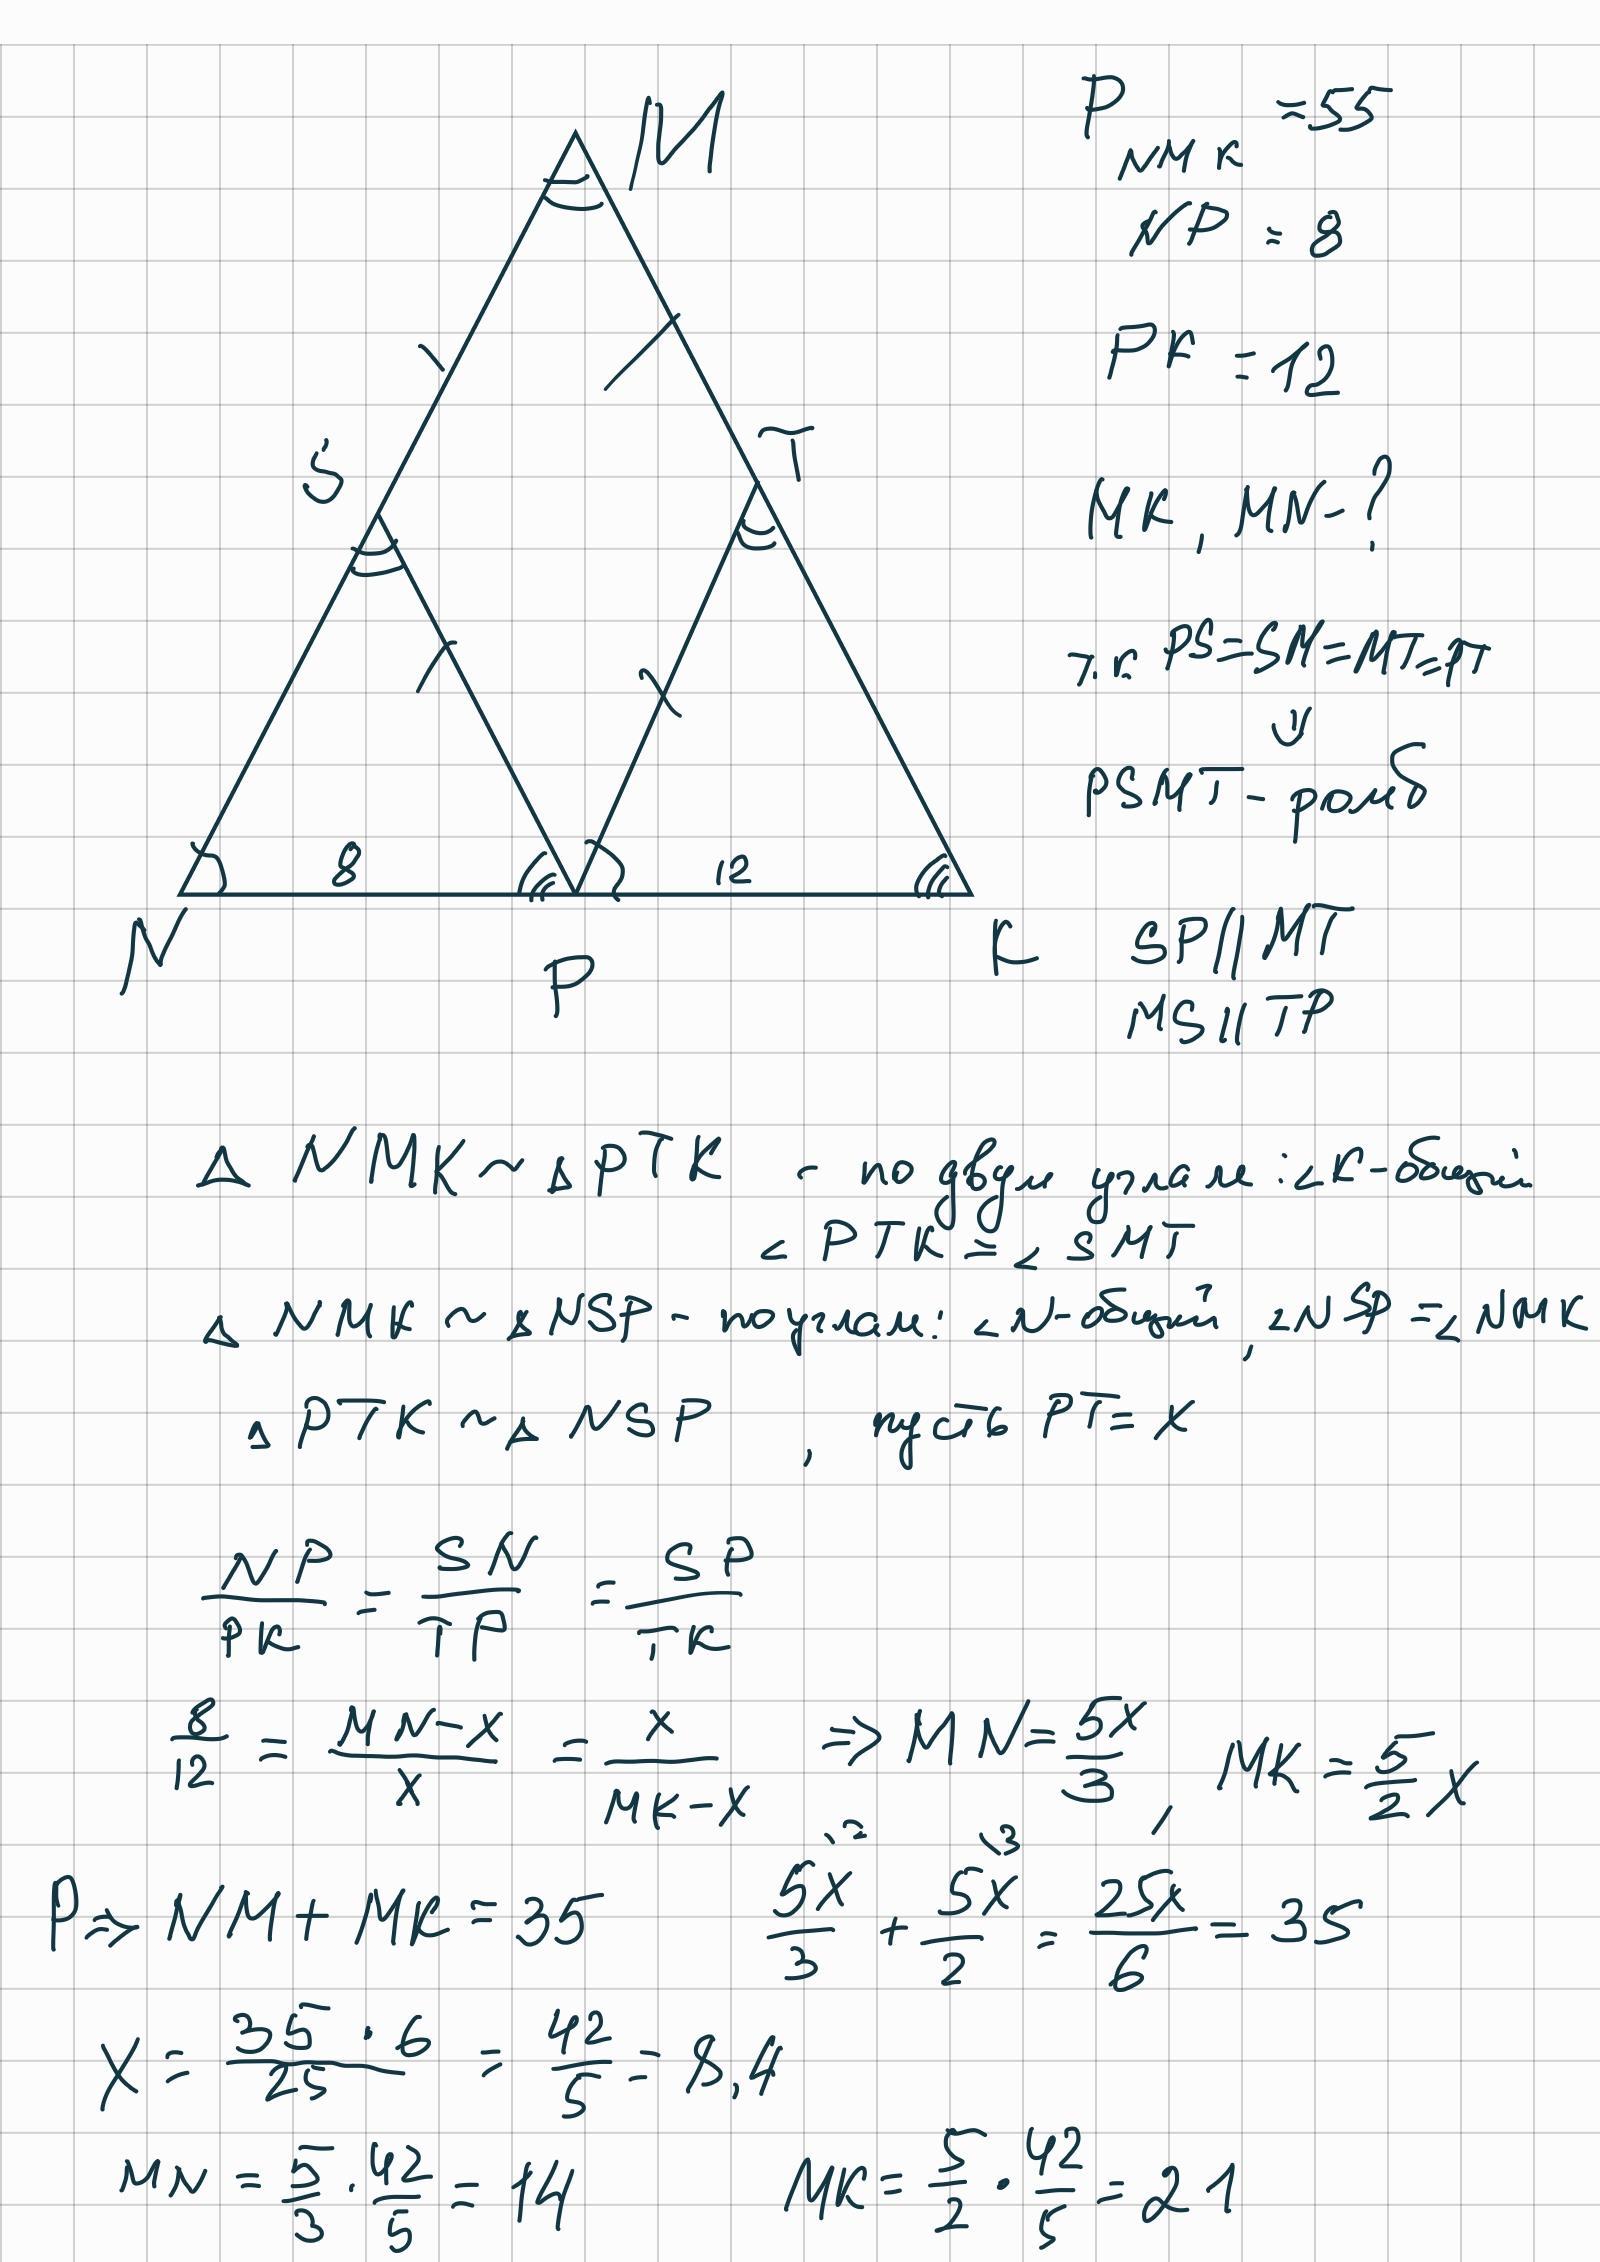 M
S
T
8
12
N
P
K
P NMK = 55
NP = 8
PK = 12
MK, MN - ?
т.к PS=SM=MT=PT
⇓
PSMT - ромб
SP || MT
MS || TP
Δ NMK ~ Δ PTK - по двум углам: ∠K-общий
∠ PTK = ∠ SMT
Δ NMK ~ Δ NSP - по углам: ∠N-общий, ∠NSP = ∠NMK
Δ PTK ~ Δ NSP , пусть PT = x
NP/PK = SN/TP = SP/TK
8/12 = MN-x/x = x/MK-x ⇒ MN = 5x/3 , MK = 5/2 x
P ⇒ NM + MK = 35 5x\2/3 + 5x\3/2 = 25x/6 = 35
x = 35 · 6/25 = 42/5 = 8,4
MN = 5/3 · 42/5 = 14 MK = 5/2 · 42/5 = 21